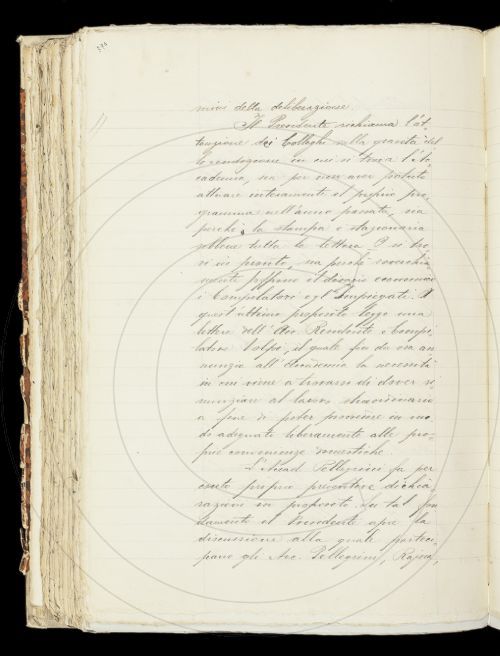 mini della deliberazione.
Il Presidente richiama l'at-
tenzione dei Colleghi sulla gravità del-
la condizione in cui si trova l'Ac-
cademia, sia per non aver potuto
attuare interamente il proprio pro-
gramma nell'anno passato, sia
perchè la stampa è stazionaria
sebbene tutta la lettera P si tro-
vi in pronto, sia perchè
soffrono il disagio economico
i Compilatori e gl'Impiegati. A
quest'ultimo proposito legge una
lettera dell'Acc. Residente e Compi-
latore Volpi, il quale fin da ora an-
nunzia all'Accademia la necessità
in cui viene a trovarsi di dover ri-
nunziare al lavoro straordinario
a fine di poter provvedere in mo-
do adeguato liberamente alle pro-
prie convenienze domestiche.
L'Accad. Pellegrini fa per
conto proprio dichia-
razioni in proposito. Su tal fon
damento il Presidente apre la
discussione alla quale parteci-
pano gli Acc. Pellegrini, Rajna,